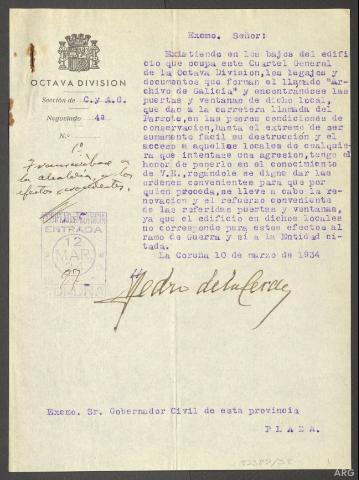 OCTAVA DIVISION
Sección de C.y A.G.
Negociado 4º
N.º
ENTRADA
12
MAR
Excmo. Señor:
Existiendo en los bajos del edifi
cio que ocupa este Cuartel General
de la Octava Division,los legajos y
documentos que forman el llamado "Ar-
chivo de Galicia" y encontrándose las
puertas y ventanas de dicho local,
que dan a la carretera llamada del
Parrote,en las peores condiciones de
conservacion,hasta el extremo de ser
sumamente fácil su destrucción y el
acceso a aquellos locales de cualquie-
ra que intentase una agresion,tengo el
honor de ponerlo en el conocimiento
de V.E.,rogándole se digne dar las
órdenes convenientes para que por
quien proceda,se lleve a cabo la re-
novacion y el refuerzo conveniente
de las referidas puertas y ventanas,
ya que el edificio en dichos locales
no corresponde para estos efectos al
ramo de Guerra y sí a la Entidad ci-
tada.
La Coruña 10 de marzo de 1934
Pedro de la Cerda
Excmo. Sr. Gobernador Civil de esta provincia
P L A Z A.
ARG